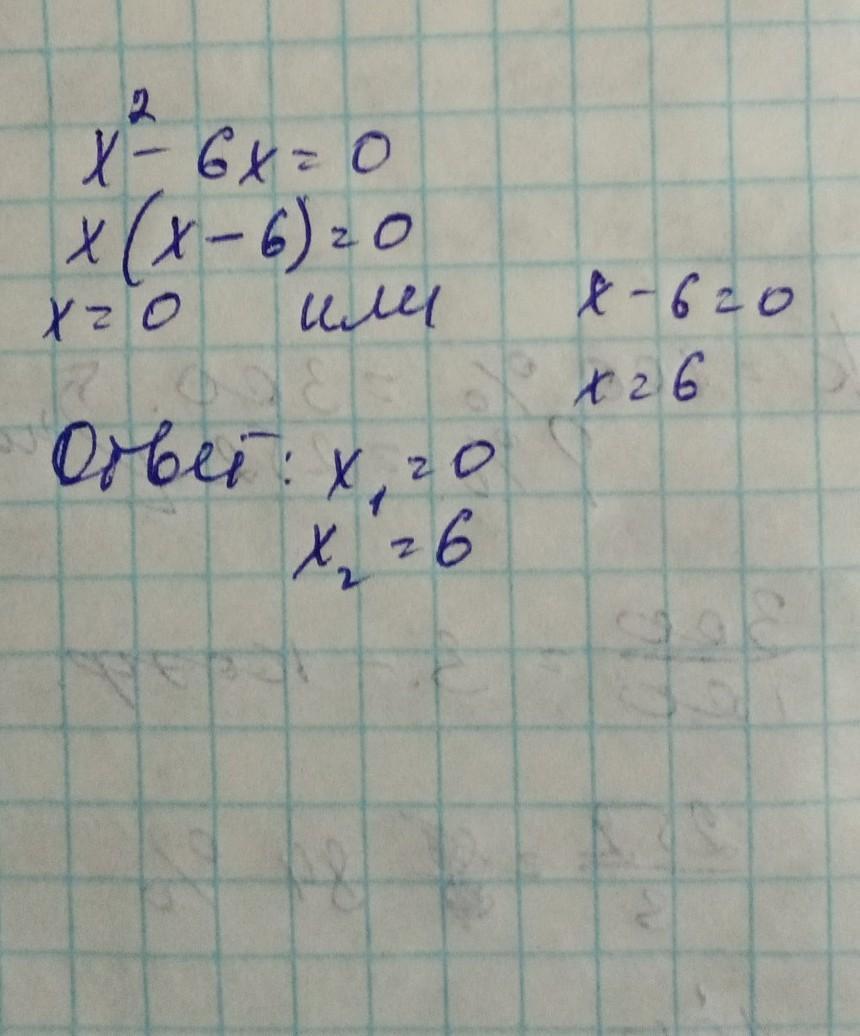 x² - 6x = 0
x(x - 6) = 0
x = 0 или x - 6 = 0
x = 6
Ответ: x₁ = 0
x₂ = 6